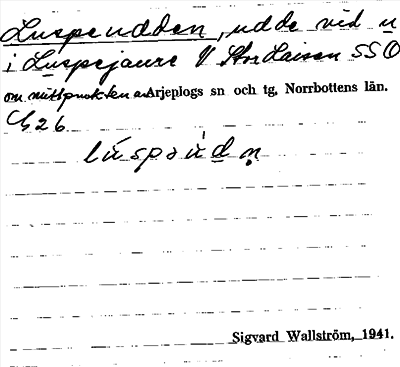 Luspeudden, udde vid u
i Luspejaure V Stor Laisan SSO
om mittpunkten av Arjeplogs sn och tg, Norrbottens län.
26
lúspə
Sigvard Wallström, 1941.